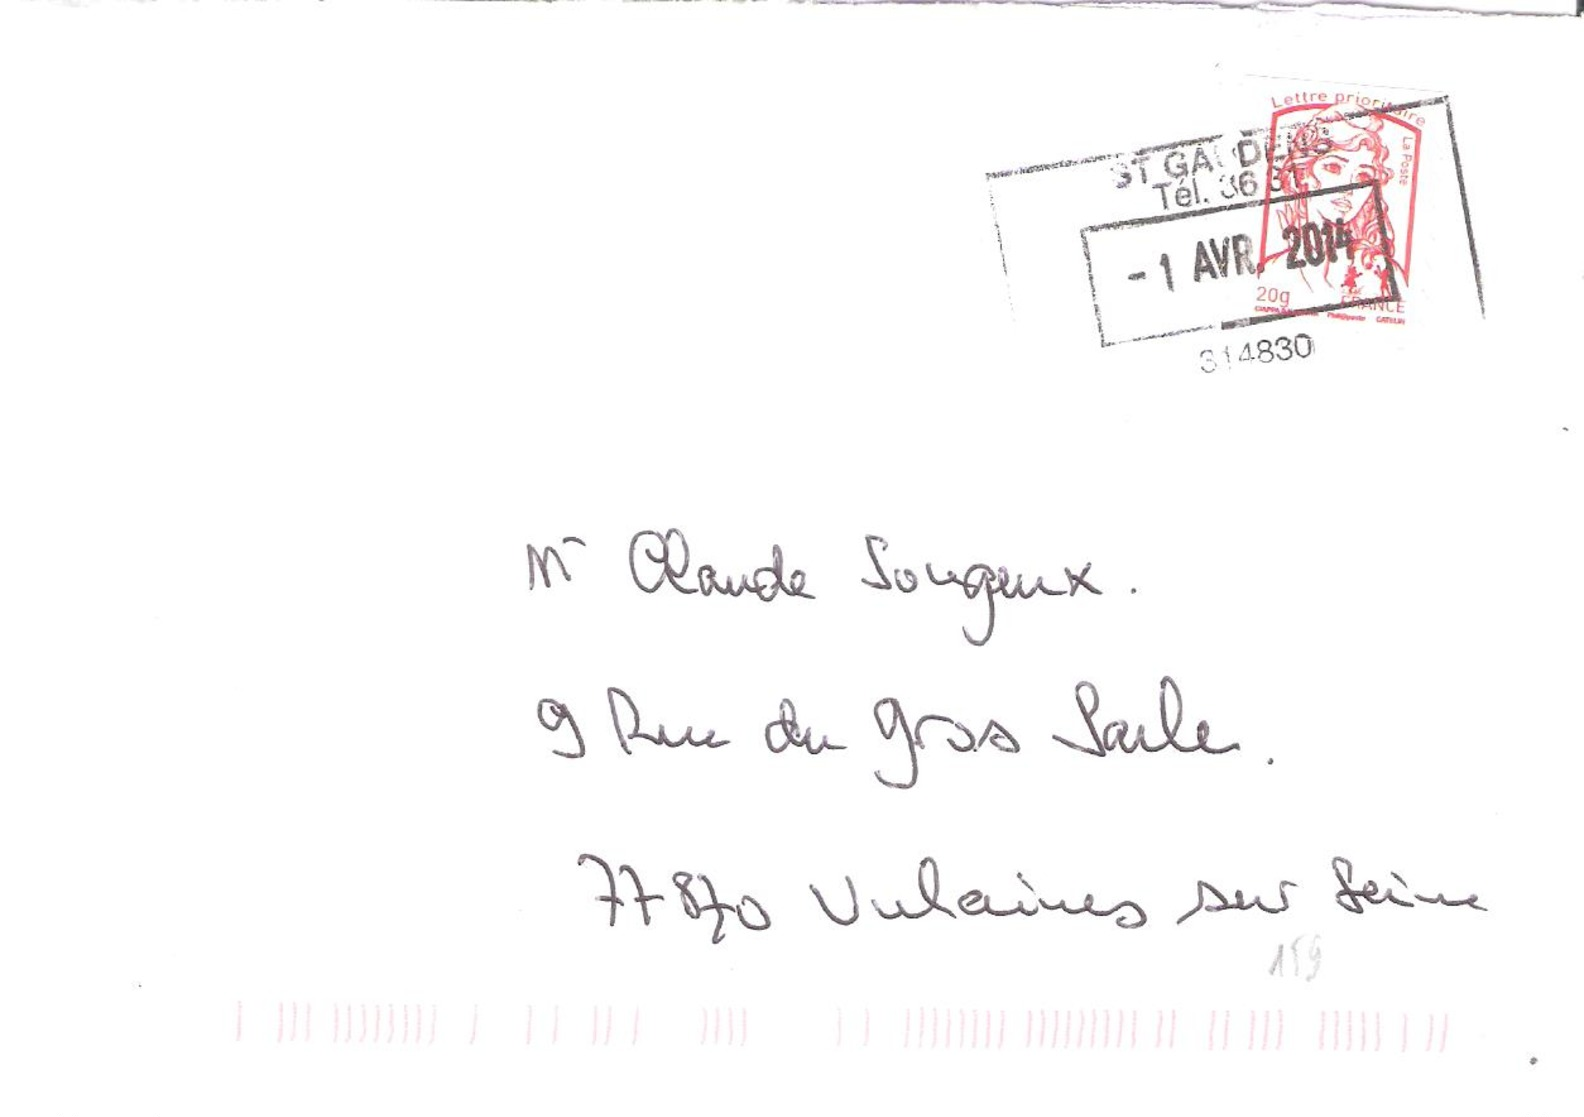 Lettre prioritaire
La Poste
ST GAUDENS
Tél. 36 31
-1 AVR. 2014
20g
FRANCE
314830
Mr Claude Sougeux.
9 Rue du gros Saule.
77870 Vulaines sur Seine
159